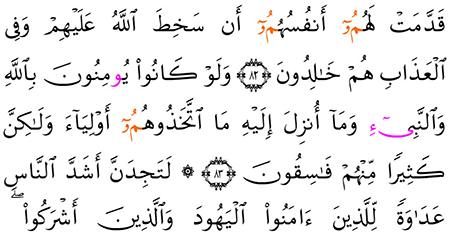 قَدَّمَتْ لَهُمُۥٓ أَنفُسُهُمُۥٓ أَن سَخِطَ ٱللَّهُ عَلَيْهِمْ وَفِى
ٱلْعَذَابِ هُمْ خَـٰلِدُونَ ۝٨٢ وَلَوْ كَانُوا۟ يُومِنُونَ بِٱللَّهِ
وَٱلنَّبِىٓءِ وَمَآ أُنزِلَ إِلَيْهِ مَا ٱتَّخَذُوهُمُۥٓ أَوْلِيَآءَ وَلَـٰكِنَّ
كَثِيرًا مِّنْهُمْ فَـٰسِقُونَ ۝٨٣ ۞ لَتَجِدَنَّ أَشَدَّ ٱلنَّاسِ
عَدَٰوَةً لِّلَّذِينَ ءَامَنُوا۟ ٱلْيَهُودَ وَٱلَّذِينَ أَشْرَكُوا۟ ۖ